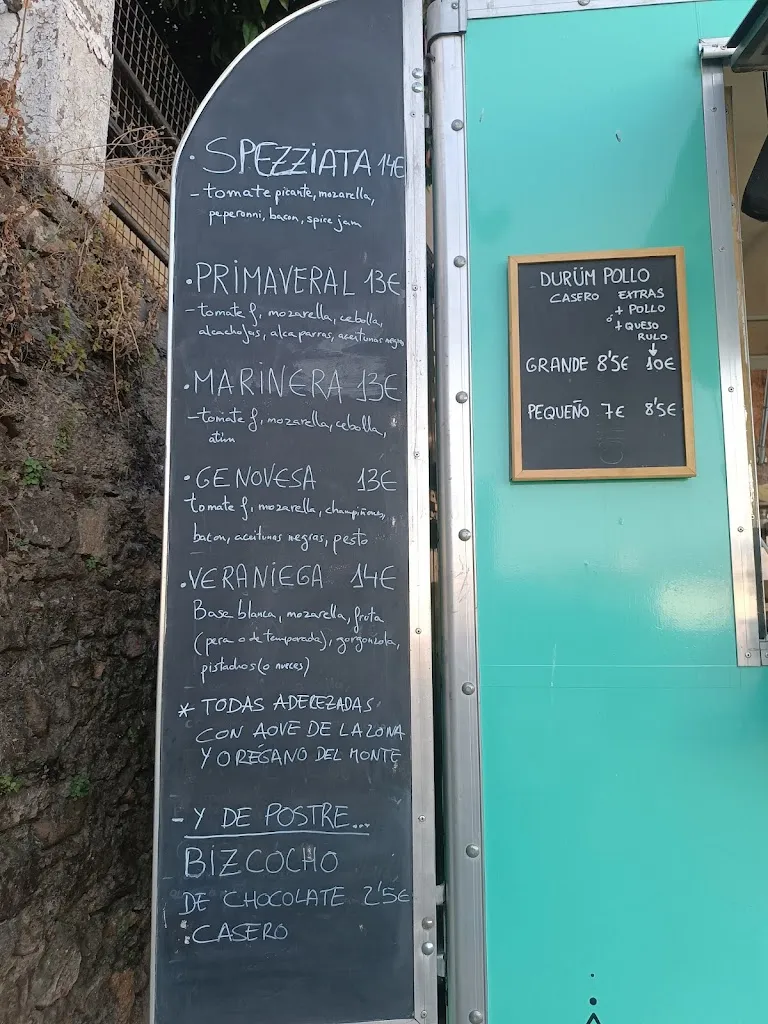 · SPEZZIATA 14€
- tomate picante, mozarella,
peperonni, bacon, spice jam
· PRIMAVERAL 13€
- tomate f, mozarella, cebolla,
alcachofas, alcaparras, aceitunas negras
· MARINERA 13€
- tomate f, mozarella, cebolla,
atún
· GENOVESA 13€
tomate f, mozarella, champiñones,
bacon, aceitunas negras, pesto
· VERANIEGA 14€
Base blanca, mozarella, fruta
(pera o de temporada), gorgonzola,
pistachos (o nueces)
* TODAS ADEREZADAS
CON AOVE DE LA ZONA
Y ORÉGANO DEL MONTE
- Y DE POSTRE...
BIZCOCHO
DE CHOCOLATE 2'5€
CASERO
DURÜM POLLO
CASERO EXTRAS
+ POLLO
ó + QUESO
RULO
GRANDE 8'5€ 10€
PEQUEÑO 7€ 8'5€